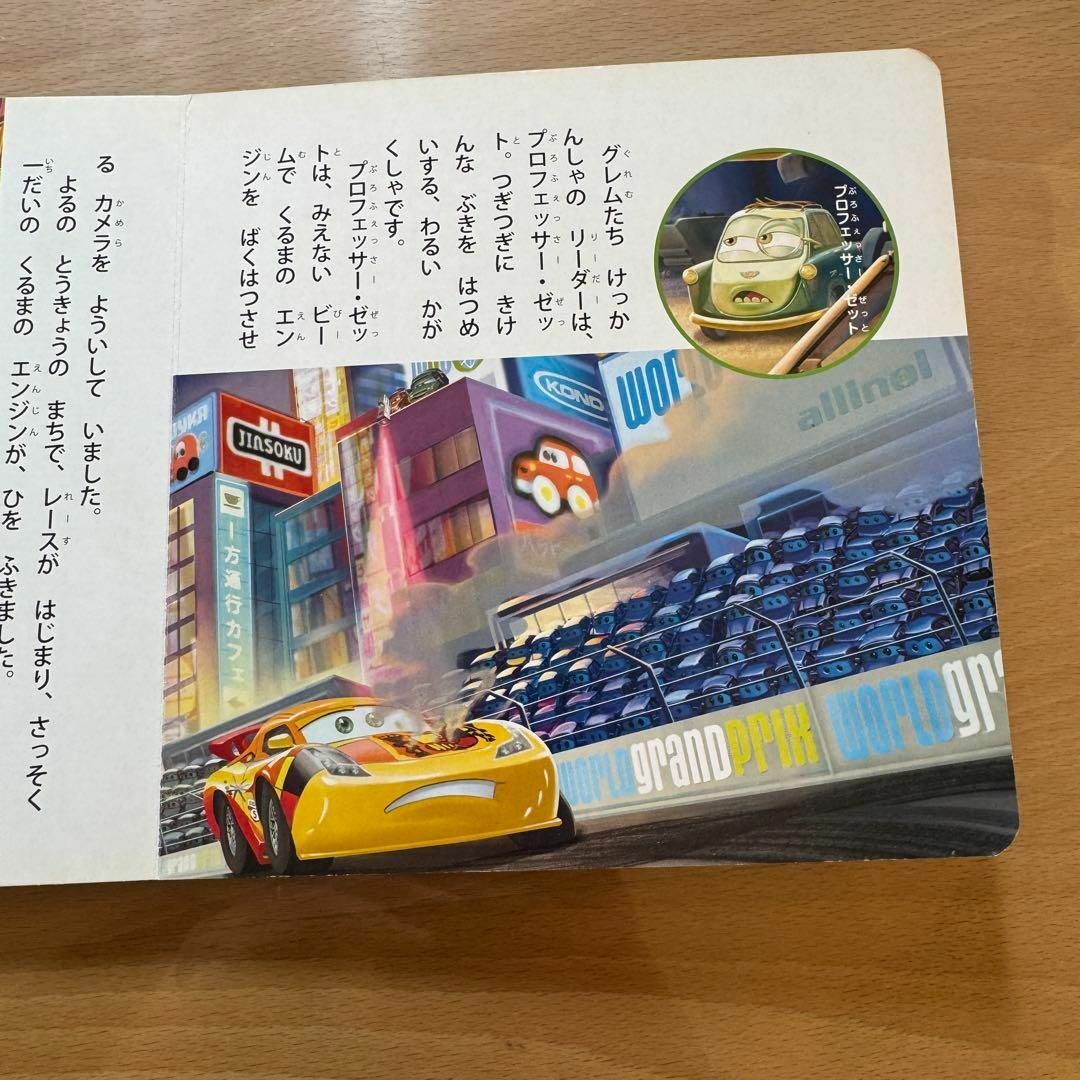 グレムたち けっか
んしゃの リーダーは、
プロフェッサー・ゼッ
ト。つぎつぎに きけ
んな ぶきを はつめ
いする、わるい かが
くしゃです。
プロフェッサー・ゼッ
トは、みえない ビー
ムで くるまの エン
ジンを ばくはつさせ
る カメラを よういして いました。
よるの とうきょうの まちで、レースが はじまり、さっそく
一だいの くるまの エンジンが、ひを ふきました。
プロフェッサー・ゼット
JINSOKU
KONO
WORL
allinol
一方通行カフェ
WORLD grand PRIX WORLD gr